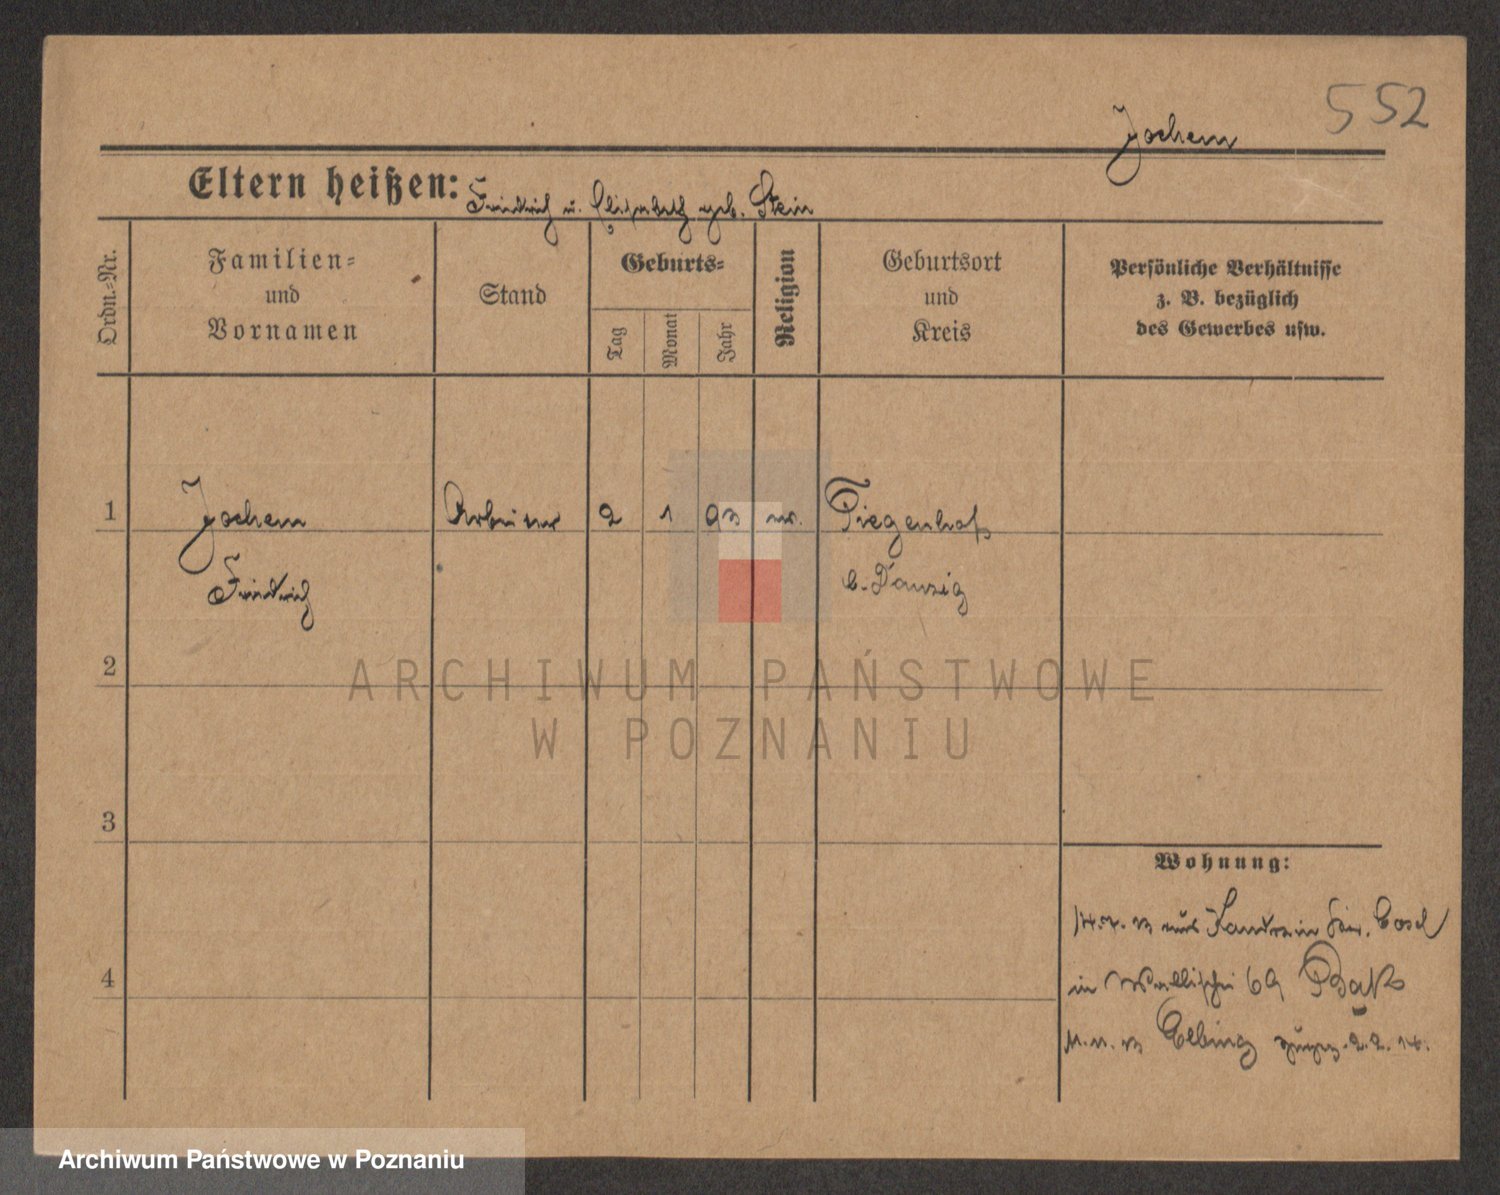 552
Jochem
Eltern heißen: Friedrich u. Elisabeth geb. Stein
Ordn.-Nr.
Familien-
und
Vornamen
Stand
Geburts-
Tag
Monat
Jahr
Religion
Geburtsort
und
Kreis
Persönliche Verhältnisse
z. B. bezüglich
des Gewerbes usw.
1 Jochem Arbeiter 2 1 93 ev. Tiegenhof
Friedrich b. Danzig
2
ARCHIWUM PAŃSTWOWE
W POZNANIU
3
Wohnung:
14.7.13 aus Cosel
4
in Wallischei 69
11.11.13 Elbing zurück 2.2.14.
Archiwum Państwowe w Poznaniu